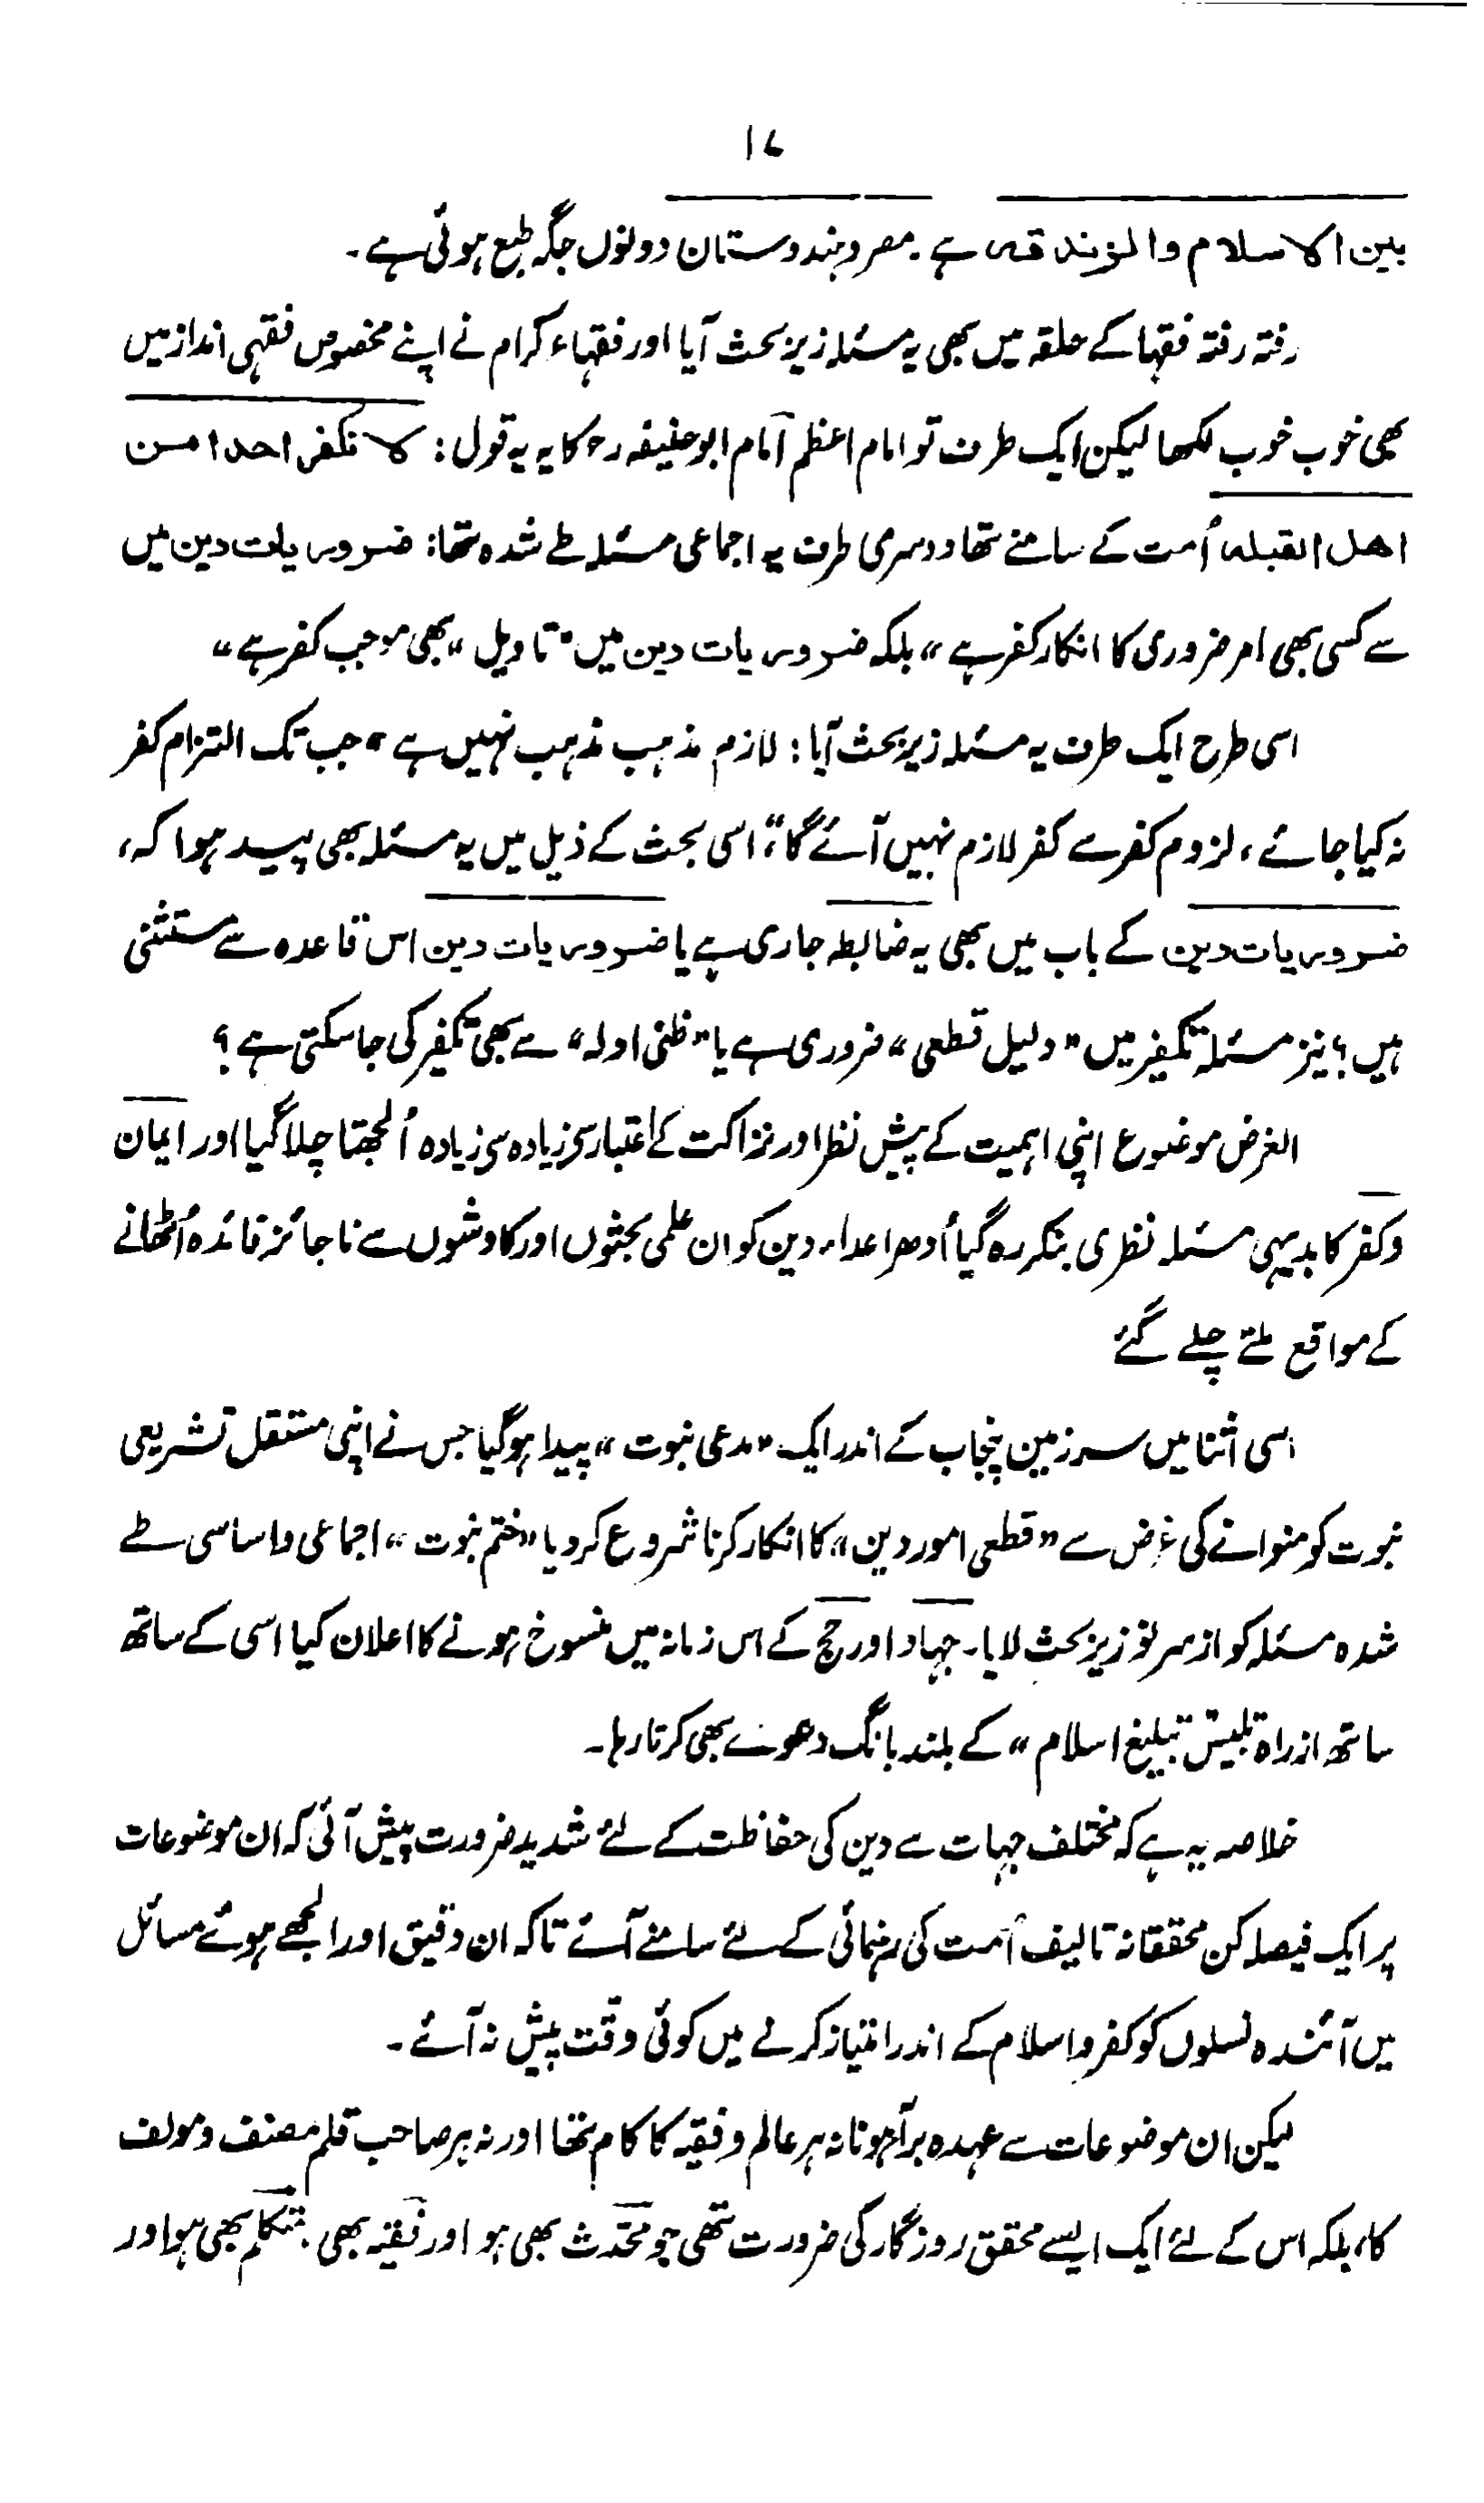 ۱۷
بین الاسلام والزندقہ ہے۔ مصر و ہندوستان دونوں جگہ طبع ہوئی ہے۔
رفتہ رفتہ فقہا کے حلقہ میں بھی یہ مسئلہ زیر بحث آیا اور فقہاء کرام نے اپنے مخصوص فقہی انداز میں
بھی خوب خوب لکھا لیکن ایک طرف تو امام اعظم امام ابوحنیفہ رح کا یہ یہ قول: لا نکفر احدا من
اھل القبلہ اُمت کے سامنے تھا دوسری طرف یہ اجماعی مسئلہ طے شدہ تھا: ضروریات دین میں
سے کسی بھی امر ضروری کا انکار کفر ہے“ بلکہ ضروریات دین میں ”تاویل“ بھی موجب کفر ہے“
اسی طرح ایک طرف یہ مسئلہ زیر بحث آیا: لازم مذہب مذہب نہیں ہے“ جب تک التزام کفر
نہ کیا جائے، لزوم کفر سے کفر لازم نہیں آئے گا“، اسی بحث کے ذیل میں یہ مسئلہ بھی پیدا ہوا کہ،
ضروریات دین کے باب میں بھی یہ ضابطہ جاری ہے یا ضروریات دین اس قاعدہ سے مستثنیٰ
ہیں؟ نیز مسئلہ تکفیر میں ”دلیل قطعی“ ضروری ہے یا ”ظنی ادلہ“ سے بھی تکفیر کی جا سکتی ہے؟
الغرض موضوع اپنی اہمیت کے پیش نظر اور نزاکت کے اعتبار سی زیادہ سی زیادہ اُلجھتا چلا گیا اور ایمان
و کفر کا بدیہی مسئلہ نظری بنکر رہ گیا اُدھر اعداء دین کو ان علمی بحثوں اور کاوشوں سے ناجائز فائدہ اُٹھانے
کے مواقع ملتے چلے گئے
اسی اثنا میں سرزمین پنجاب کے اندر ایک ”مدعی نبوت“ پیدا ہو گیا جس نے اپنی مستقل تشریعی
نبوت کو منوانے کی غرض سے ”قطعی امور دین“ کا انکار کرنا شروع کر دیا ”ختم نبوت“ اجماعی و اساسی طے
شدہ مسئلہ کو از سر نو زیر بحث لایا۔ جہاد اور حج کے اس زمانہ میں منسوخ ہونے کا اعلان کیا اسی کے ساتھ
ساتھ از راہ تلبیس تبلیغ اسلام“ کے بلند بانگ دعوے بھی کرتا رہا۔
خلاصہ یہ ہے کہ مختلف جہات سے دین کی حفاظت کے لئے شدید ضرورت پیش آئی کہ ان موضوعات
پر ایک فیصلہ کن محققانہ تالیف اُمت کی رہنمائی کے لئے سامنے آئے تاکہ ان دقیق اور الجھے ہوئے مسائل
میں آئندہ نسلوں کو کفر و اسلام کے اندر امتیاز کرنے میں کوئی دقت پیش نہ آئے۔
لیکن ان موضوعات سے عہدہ برآ ہونا نہ ہر عالم و فقیہ کا کام تھا اور نہ ہر صاحب قلم مصنف و مولف
کا، بلکہ اس کے لئے ایک ایسے محقق روزگار کی ضرورت تھی جو محدّث بھی ہو اور فقیہ بھی، متکلم بھی ہو اور